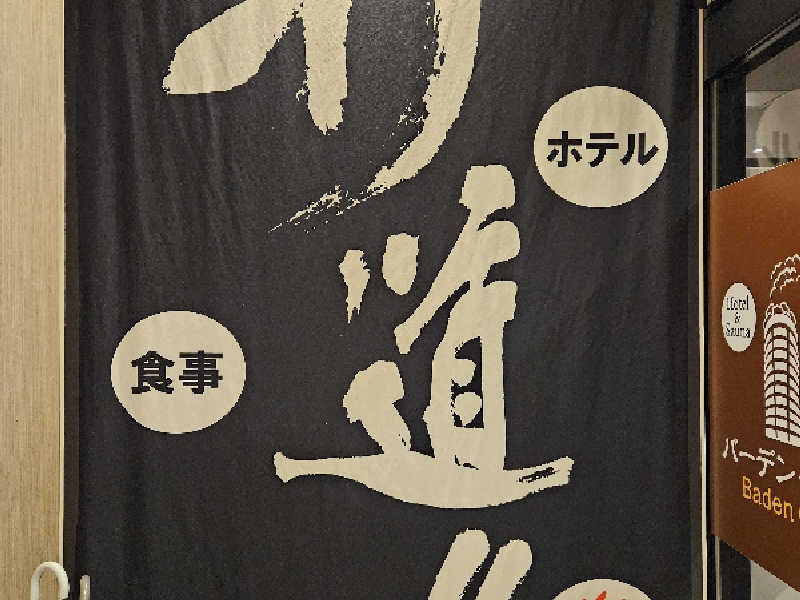 ホテル
道
食事
Hotel
&
Sauna
バーデン
Baden